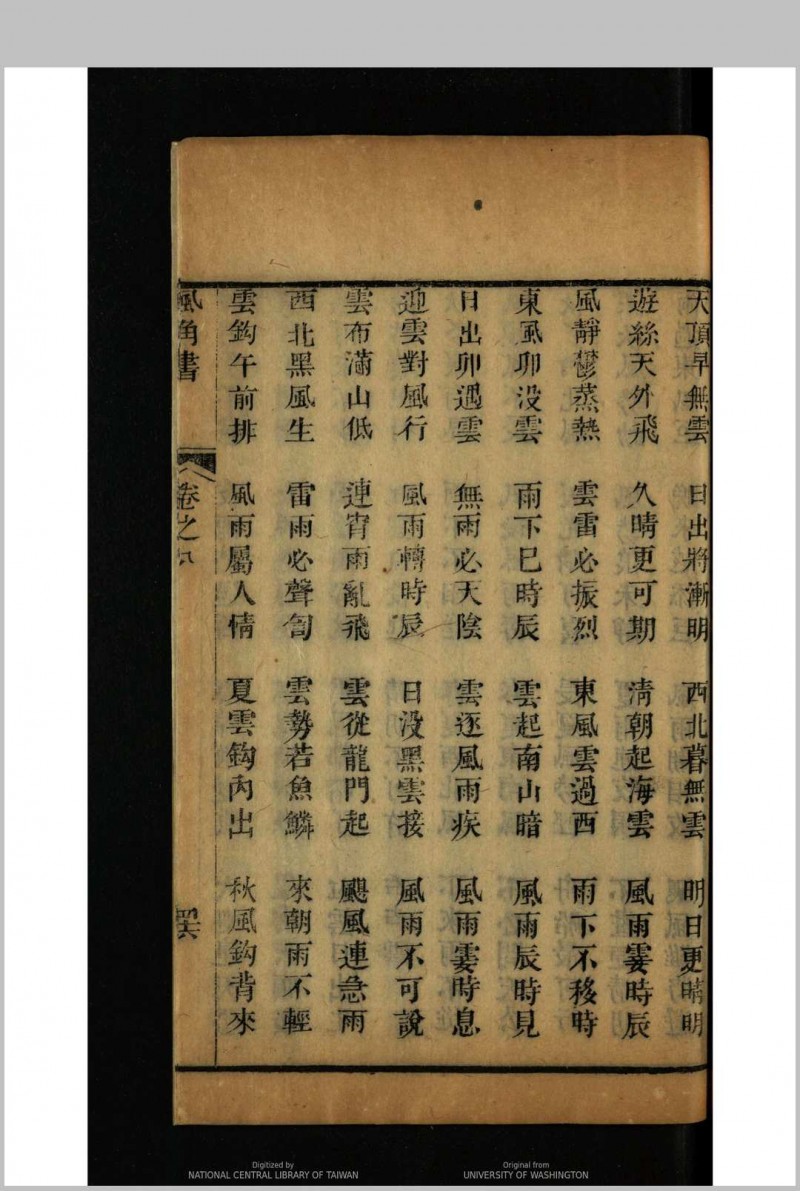 天頂早無雲　日出將漸明　西北暮無雲　明日更晴明
遊絲天外飛　久晴更可期　清朝起海雲　風雨霎時辰
風靜鬱蒸熱　雲雷必振烈　東風雲過西　雨下不移時
東風卯没雲　雨下巳時辰　雲起南山暗　風雨辰時見
日出卯遇雲　無雨必天陰　雲逐風雨疾　風雨霎時息
迎雲對風行　風雨轉時辰　日没黑雲接　風雨不可說
雲布滿山低　連宵雨亂飛　雲從龍門起　颶風連急雨
西北黑風生　雷雨必聲訇　雲勢若魚鱗　來朝雨不輕
雲鈎午前排　風雨屬人情　夏雲鈎內出　秋風鈎背來
風角書　卷之八
Digitized by
NATIONAL CENTRAL LIBRARY OF TAIWAN
Original from
UNIVERSITY OF WASHINGTON